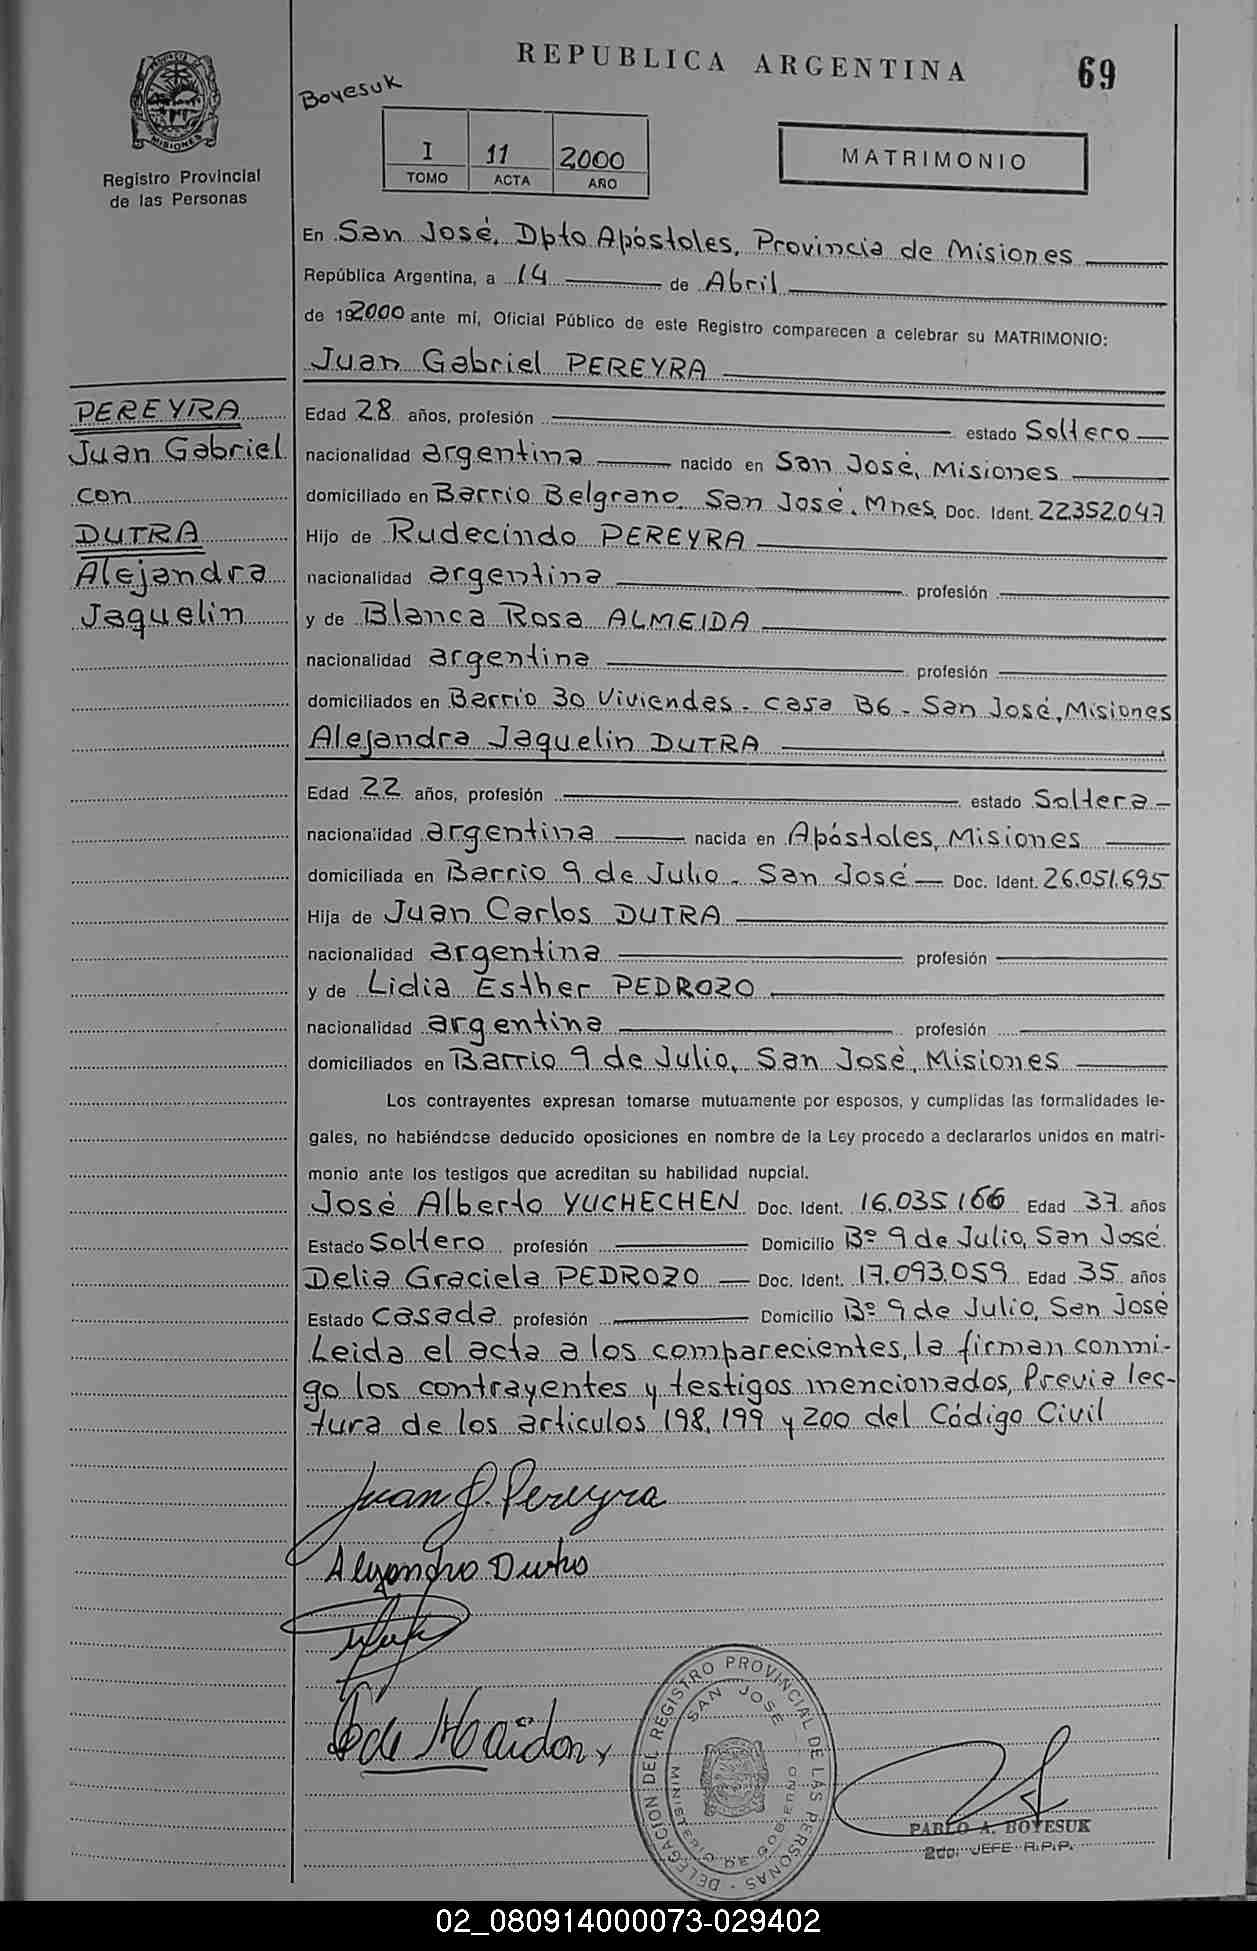 REPUBLICA ARGENTINA
69
PROVINCIA DE
MISIONES
Registro Provincial
de las Personas
Boyesuk
I 11 2000
TOMO ACTA AÑO
MATRIMONIO
En San José, Dpto Apóstoles, Provincia de Misiones
República Argentina, a 14 de Abril
de 192000 ante mí, Oficial Público de este Registro comparecen a celebrar su MATRIMONIO:
Juan Gabriel PEREYRA
PEREYRA
Juan Gabriel
con
DUTRA
Alejandra
Jaquelin
Edad 28 años, profesión estado Soltero
nacionalidad argentina nacido en San José, Misiones
domiciliado en Barrio Belgrano. San José. Mnes. Doc. Ident. 22.352.047
Hijo de Rudecindo PEREYRA
nacionalidad argentina profesión
y de Blanca Rosa ALMEIDA
nacionalidad argentina profesión
domiciliados en Barrio 30 Viviendas - casa B6 - San José, Misiones
Alejandra Jaquelin DUTRA
Edad 22 años, profesión estado Soltera
nacionalidad argentina nacida en Apóstoles, Misiones
domiciliada en Barrio 9 de Julio - San José Doc. Ident. 26.051.695
Hija de Juan Carlos DUTRA
nacionalidad argentina profesión
y de Lidia Esther PEDROZO
nacionalidad argentina profesión
domiciliados en Barrio 9 de Julio, San José, Misiones
Los contrayentes expresan tomarse mutuamente por esposos, y cumplidas las formalidades le-
gales, no habiéndose deducido oposiciones en nombre de la Ley procedo a declararlos unidos en matri-
monio ante los testigos que acreditan su habilidad nupcial.
José Alberto YUCHECHEN Doc. Ident. 16.035.166 Edad 37 años
Estado Soltero profesión Domicilio Bº 9 de Julio, San José
Delia Graciela PEDROZO Doc. Ident. 17.093.059 Edad 35 años
Estado casada profesión Domicilio Bº 9 de Julio, San José
Leida el acta a los comparecientes, la firman conmi-
go los contrayentes y testigos mencionados, Previa lec-
tura de los articulos 198, 199 y 200 del Código Civil
Juan G. Pereyra
Alejandra Dutra
DELEGACION DEL REGISTRO PROVINCIAL DE LAS PERSONAS
SAN JOSE
MINISTERIO DE GOBIERNO
PABLO A. BOYESUK
2do. JEFE R.P.P.
02_080914000073-029402